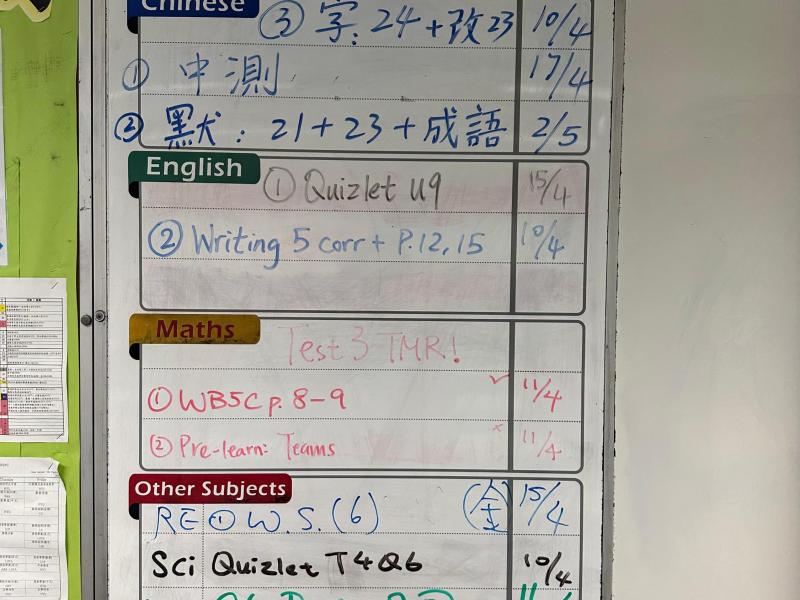 Chinese
③ 字: 24 + 改23 10/4
① 中測 17/4
② 默: 21 + 23 + 成語 2/5
English
① Quizlet U9 15/4
② Writing 5 corr + P.12, 15 10/4
Maths
Test 3 TMR!
① WB5C p. 8-9 ✓ 11/4
② Pre-learn: Teams × 11/4
Other Subjects
RE ① W.S. (6) (金) 15/4
Sci Quizlet T4Q6 10/4